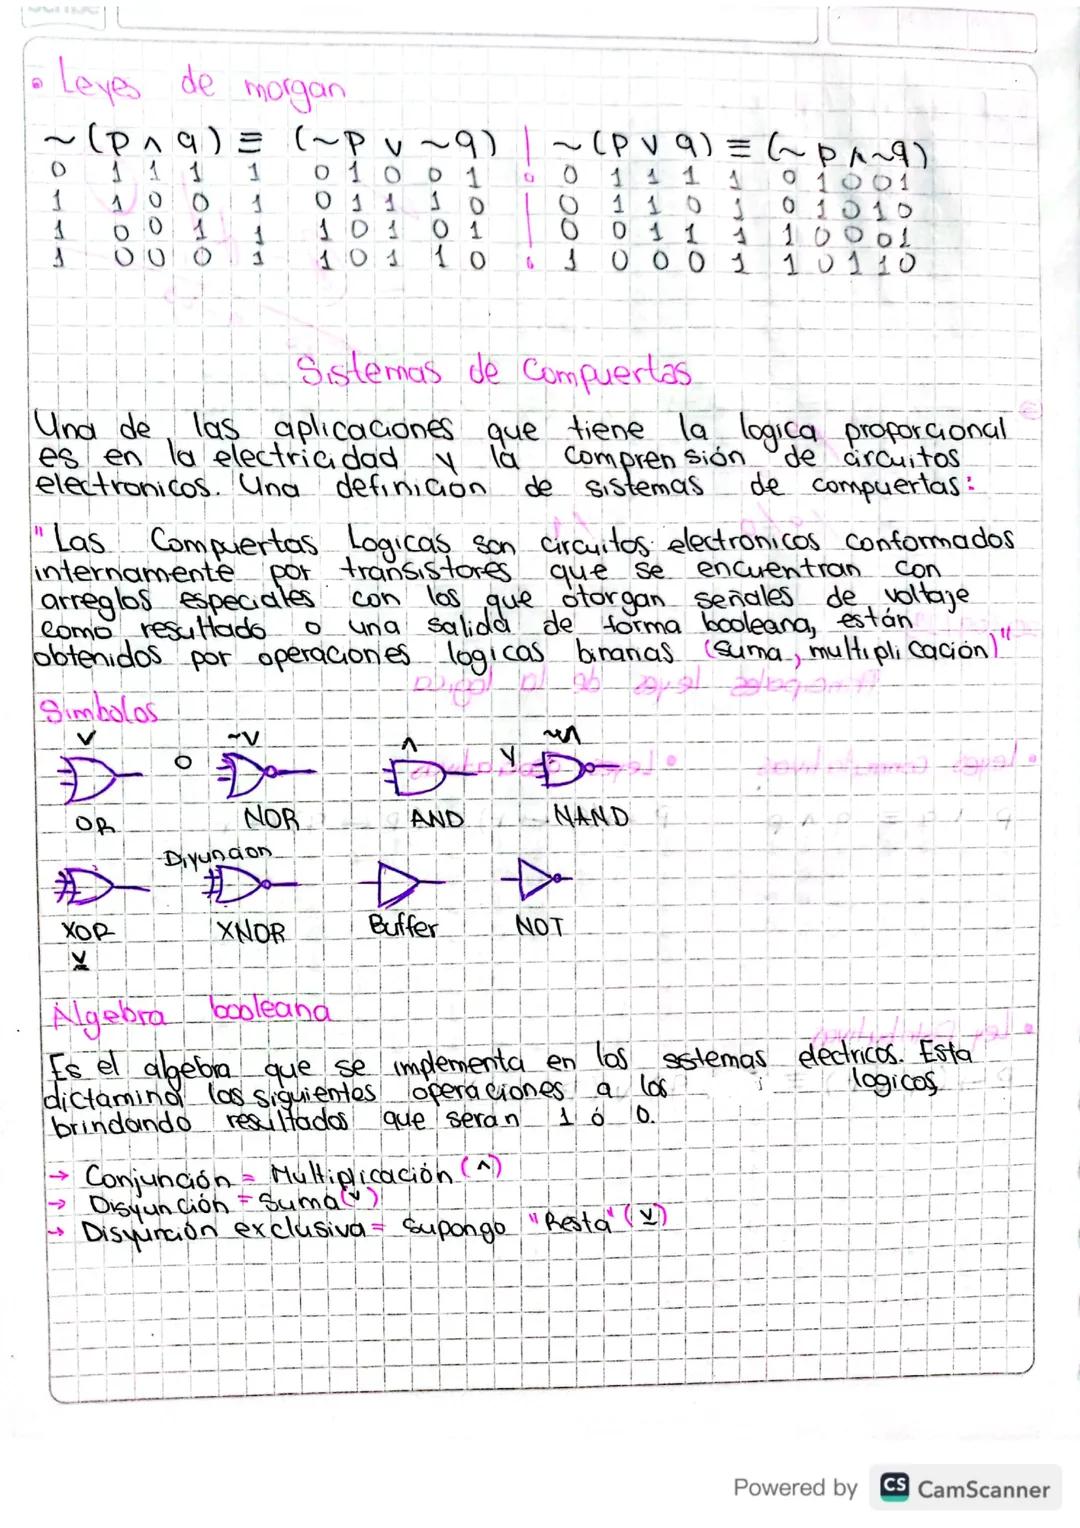 • Leyes de morgan
~(p ∧ q) ≡ (~p ∨ ~q) | ~(p ∨ q) ≡ (~p ∧ ~q)
0 1 1 1 1 0 1 0 0 1 0 1 1 1 1 0 1 0 0 1
1 1 0 0 1 0 1 1 1 0 0 1 1 0 1 0 1 0 1 0
1 0 0 1 1 1 0 1 0 1 0 0 1 1 1 1 0 0 0 1
1 0 0 0 1 1 0 1 1 0 1 0 0 0 1 1 0 1 1 0
Sistemas de Compuertas
Una de las aplicaciones que tiene la logica proporcional
es en la electricidad y la comprensión de circuitos
electronicos. Una definicion de sistemas de compuertas:
"Las Compuertas Logicas son circuitos electronicos conformados
internamente por transistores que se encuentran con
arreglos especiales con los que otorgan señales de voltaje
como resultado o una salida de forma booleana, están
obtenidos por operaciones logicas binarias (suma, multiplicación)"
Simbolos
∨ ~∨ ∧ ~∧
o y
OR NOR AND NAND
Diyuncion
XOR XNOR Buffer NOT
⊻
Algebra booleana
Es el algebra que se implementa en los sistemas electricos. Esta
dictamina las siguientes operaciones a los logicos,
brindando resultados que seran 1 ó 0.
→ Conjunción = Multiplicación (∧)
→ Disyunción = Suma (∨)
→ Disyunción exclusiva = Supongo "Resta" (⊻)
Powered by CS CamScanner